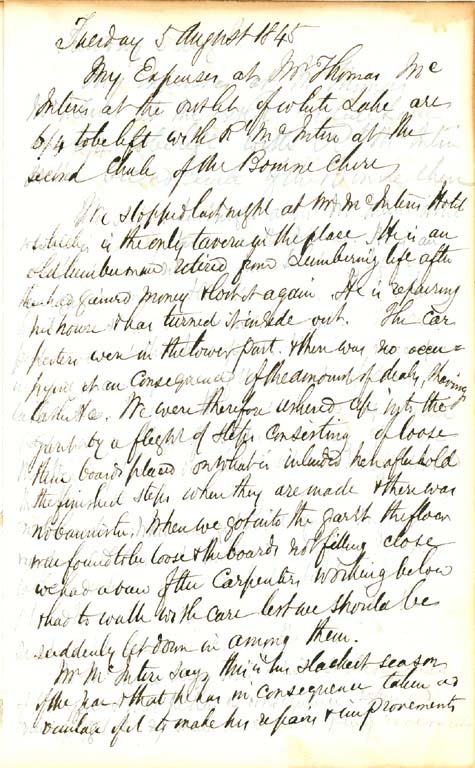 Tuesday 5 August 1845
My Expenses at Mr Thomas Mc
Intires at the outlet of White Lake are
6/4 to be left with R McIntire at the
second Chute of the Bonne Chere
We stopped last night at Mr McIntires Hotel
which is the only tavern in the place. He is an
old lumberman retired from Lumbering life after
he had gained money & lost it again. He is repairing
his house & has turned it inside out. The Car
penters were in the lower part & there was no occu-
pying it in consequence of the amount of deals, shavings
laths &c. We were therefore ushered up into the
garret by a flight of steps consisting of loose
thin boards placed on what is intended hereafter to hold
the finished steps when they are made & there was
no bannister. When we got into the garret the floor
was found to be loose & the boards not fitting close
we had a view of the Carpenters working below
& had to walk with care lest we should be
suddenly let down in among them.
Mr McIntire says this is his slackest season
of the year & that he has in consequence taken ad
vantage of it to make his repairs & improvements